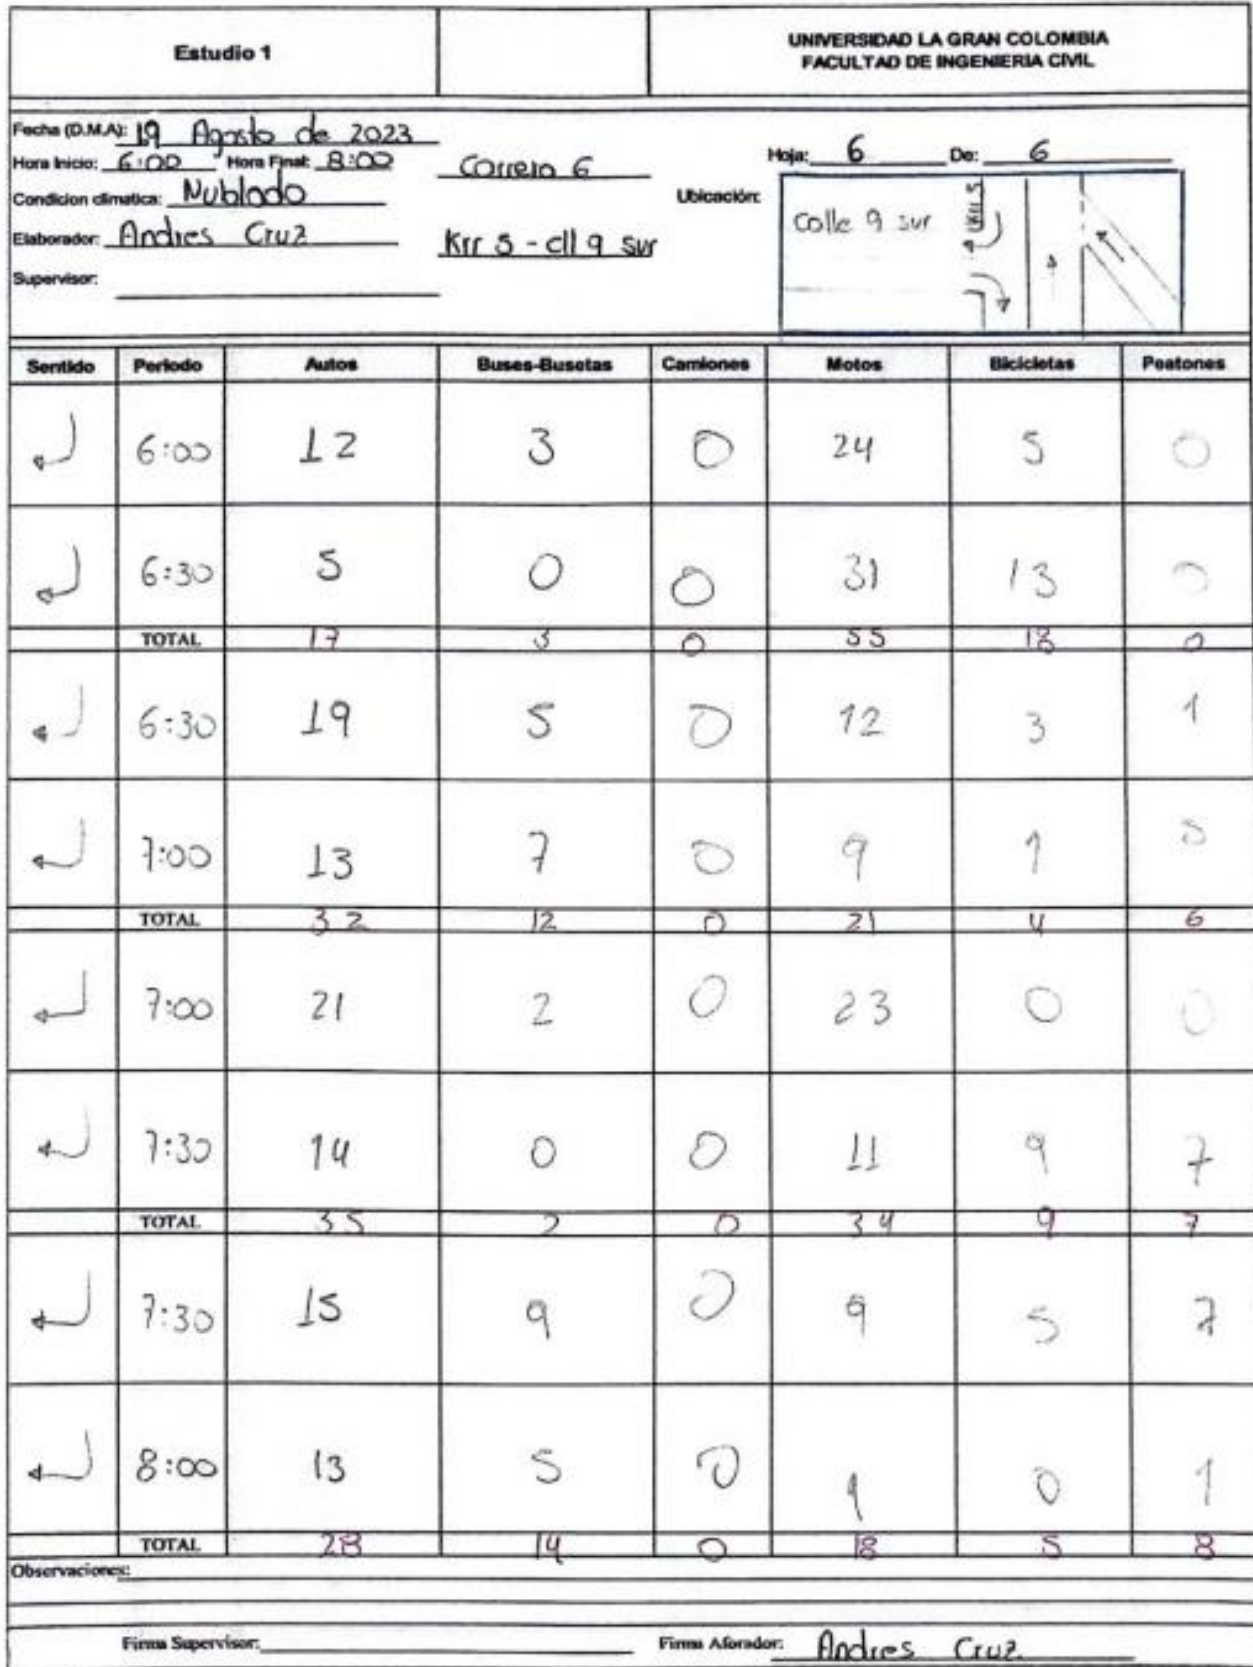 Estudio 1
UNIVERSIDAD LA GRAN COLOMBIA
FACULTAD DE INGENIERIA CIVIL
Fecha (D.M.A): 19 Agosto de 2023
Hora Inicio: 6:00 Hora Final: 8:00
Carrera 6
Condicion climatica: Nublado
Elaborador: Andres Cruz
Krr 5 - cll 9 sur
Supervisor:
Hoja: 6 De: 6
Ubicación:
Calle 9 sur
Krr 5
Sentido Periodo Autos Buses-Busetas Camiones Motos Bicicletas Peatones
6:00 12 3 0 24 5 0
6:30 5 0 0 31 13 0
TOTAL 17 3 0 55 18 0
6:30 19 5 0 12 3 1
7:00 13 7 0 9 1 5
TOTAL 32 12 0 21 4 6
7:00 21 2 0 23 0 0
7:30 14 0 0 11 9 7
TOTAL 35 2 0 34 9 7
7:30 15 9 0 9 5 7
8:00 13 5 0 9 0 1
TOTAL 28 14 0 18 5 8
Observaciones:
Firma Supervisor:
Firma Aforador: Andres Cruz